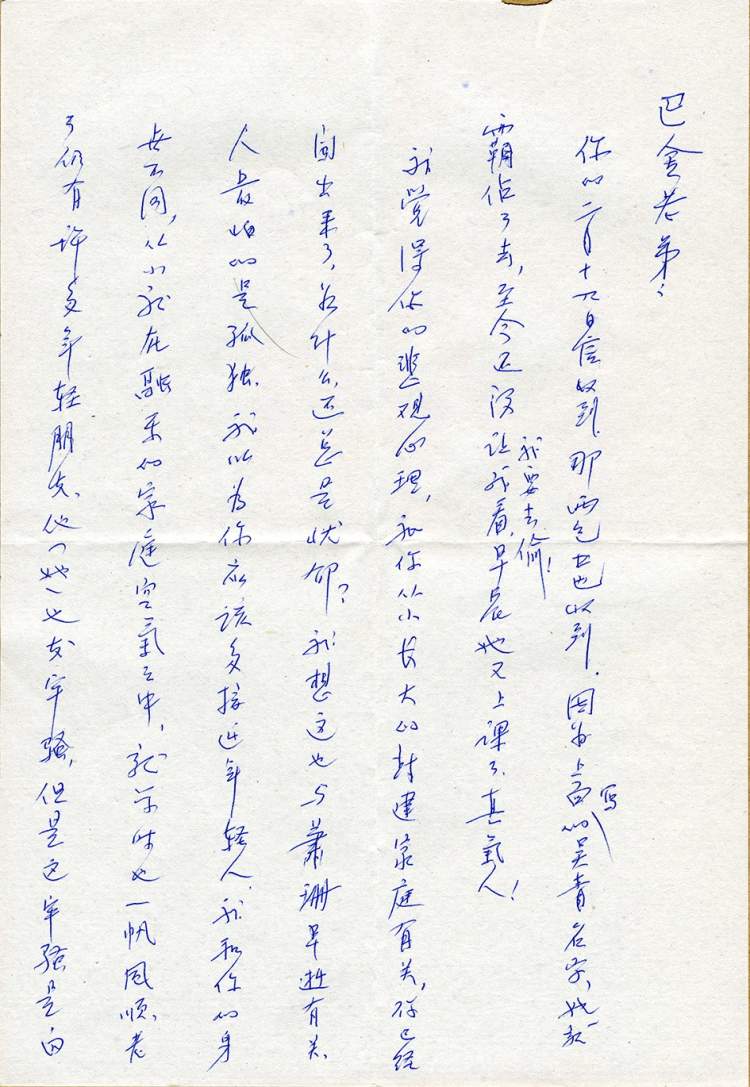 巴金老弟：
你的二月十九日信收到，那两包书也收到，因为上面写的吴青名字，她就
霸佔了去，至今还没让我看，早晨她又上课了，真气人！
我要去偷！
我觉得你的悲观心理，和你从小长大的封建家庭有关，你已经
闯出来了，为什么还总是忧郁？我想这也与萧珊早逝有关。
人最怕的是孤独，我以为你应该多接近年轻人，我和你的身
世不同，从小我在融乐的家庭空气之中，就学时也一帆风顺，老
了仍有许多年轻朋友，他（她）也发牢骚，但是这牢骚是向